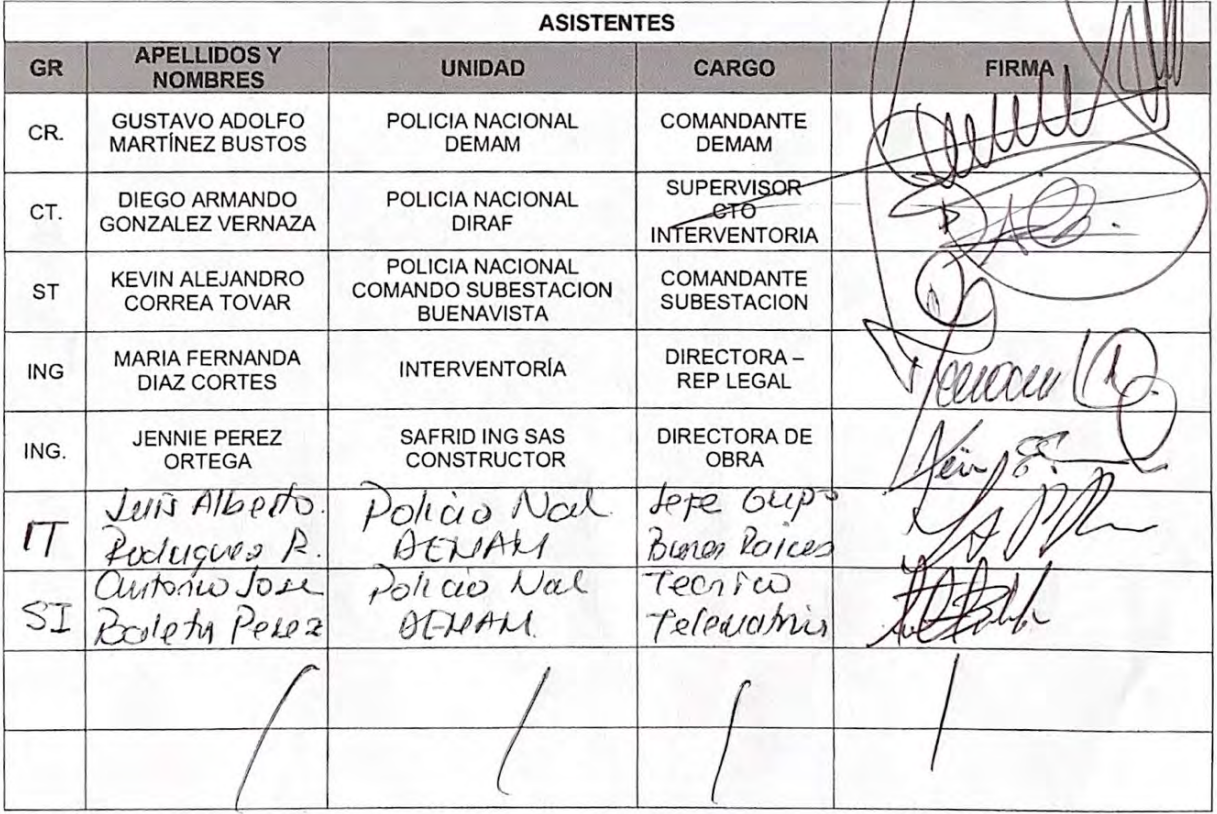 ASISTENTES
GR
APELLIDOS Y
NOMBRES
UNIDAD
CARGO
FIRMA
CR.
GUSTAVO ADOLFO
MARTÍNEZ BUSTOS
POLICIA NACIONAL
DEMAM
COMANDANTE
DEMAM
CT.
DIEGO ARMANDO
GONZALEZ VERNAZA
POLICIA NACIONAL
DIRAF
SUPERVISOR
CTO
INTERVENTORIA
ST
KEVIN ALEJANDRO
CORREA TOVAR
POLICIA NACIONAL
COMANDO SUBESTACION
BUENAVISTA
COMANDANTE
SUBESTACION
ING
MARIA FERNANDA
DIAZ CORTES
INTERVENTORÍA
DIRECTORA –
REP LEGAL
ING.
JENNIE PEREZ
ORTEGA
SAFRID ING SAS
CONSTRUCTOR
DIRECTORA DE
OBRA
IT
Luis Alberto.
Rodriguez R.
Policia Nal
DEMAM
Jefe Grupo
Bienes Raices
SI
Antonio Jose
Perez
Policia Nal
DEMAM.
Tecnico